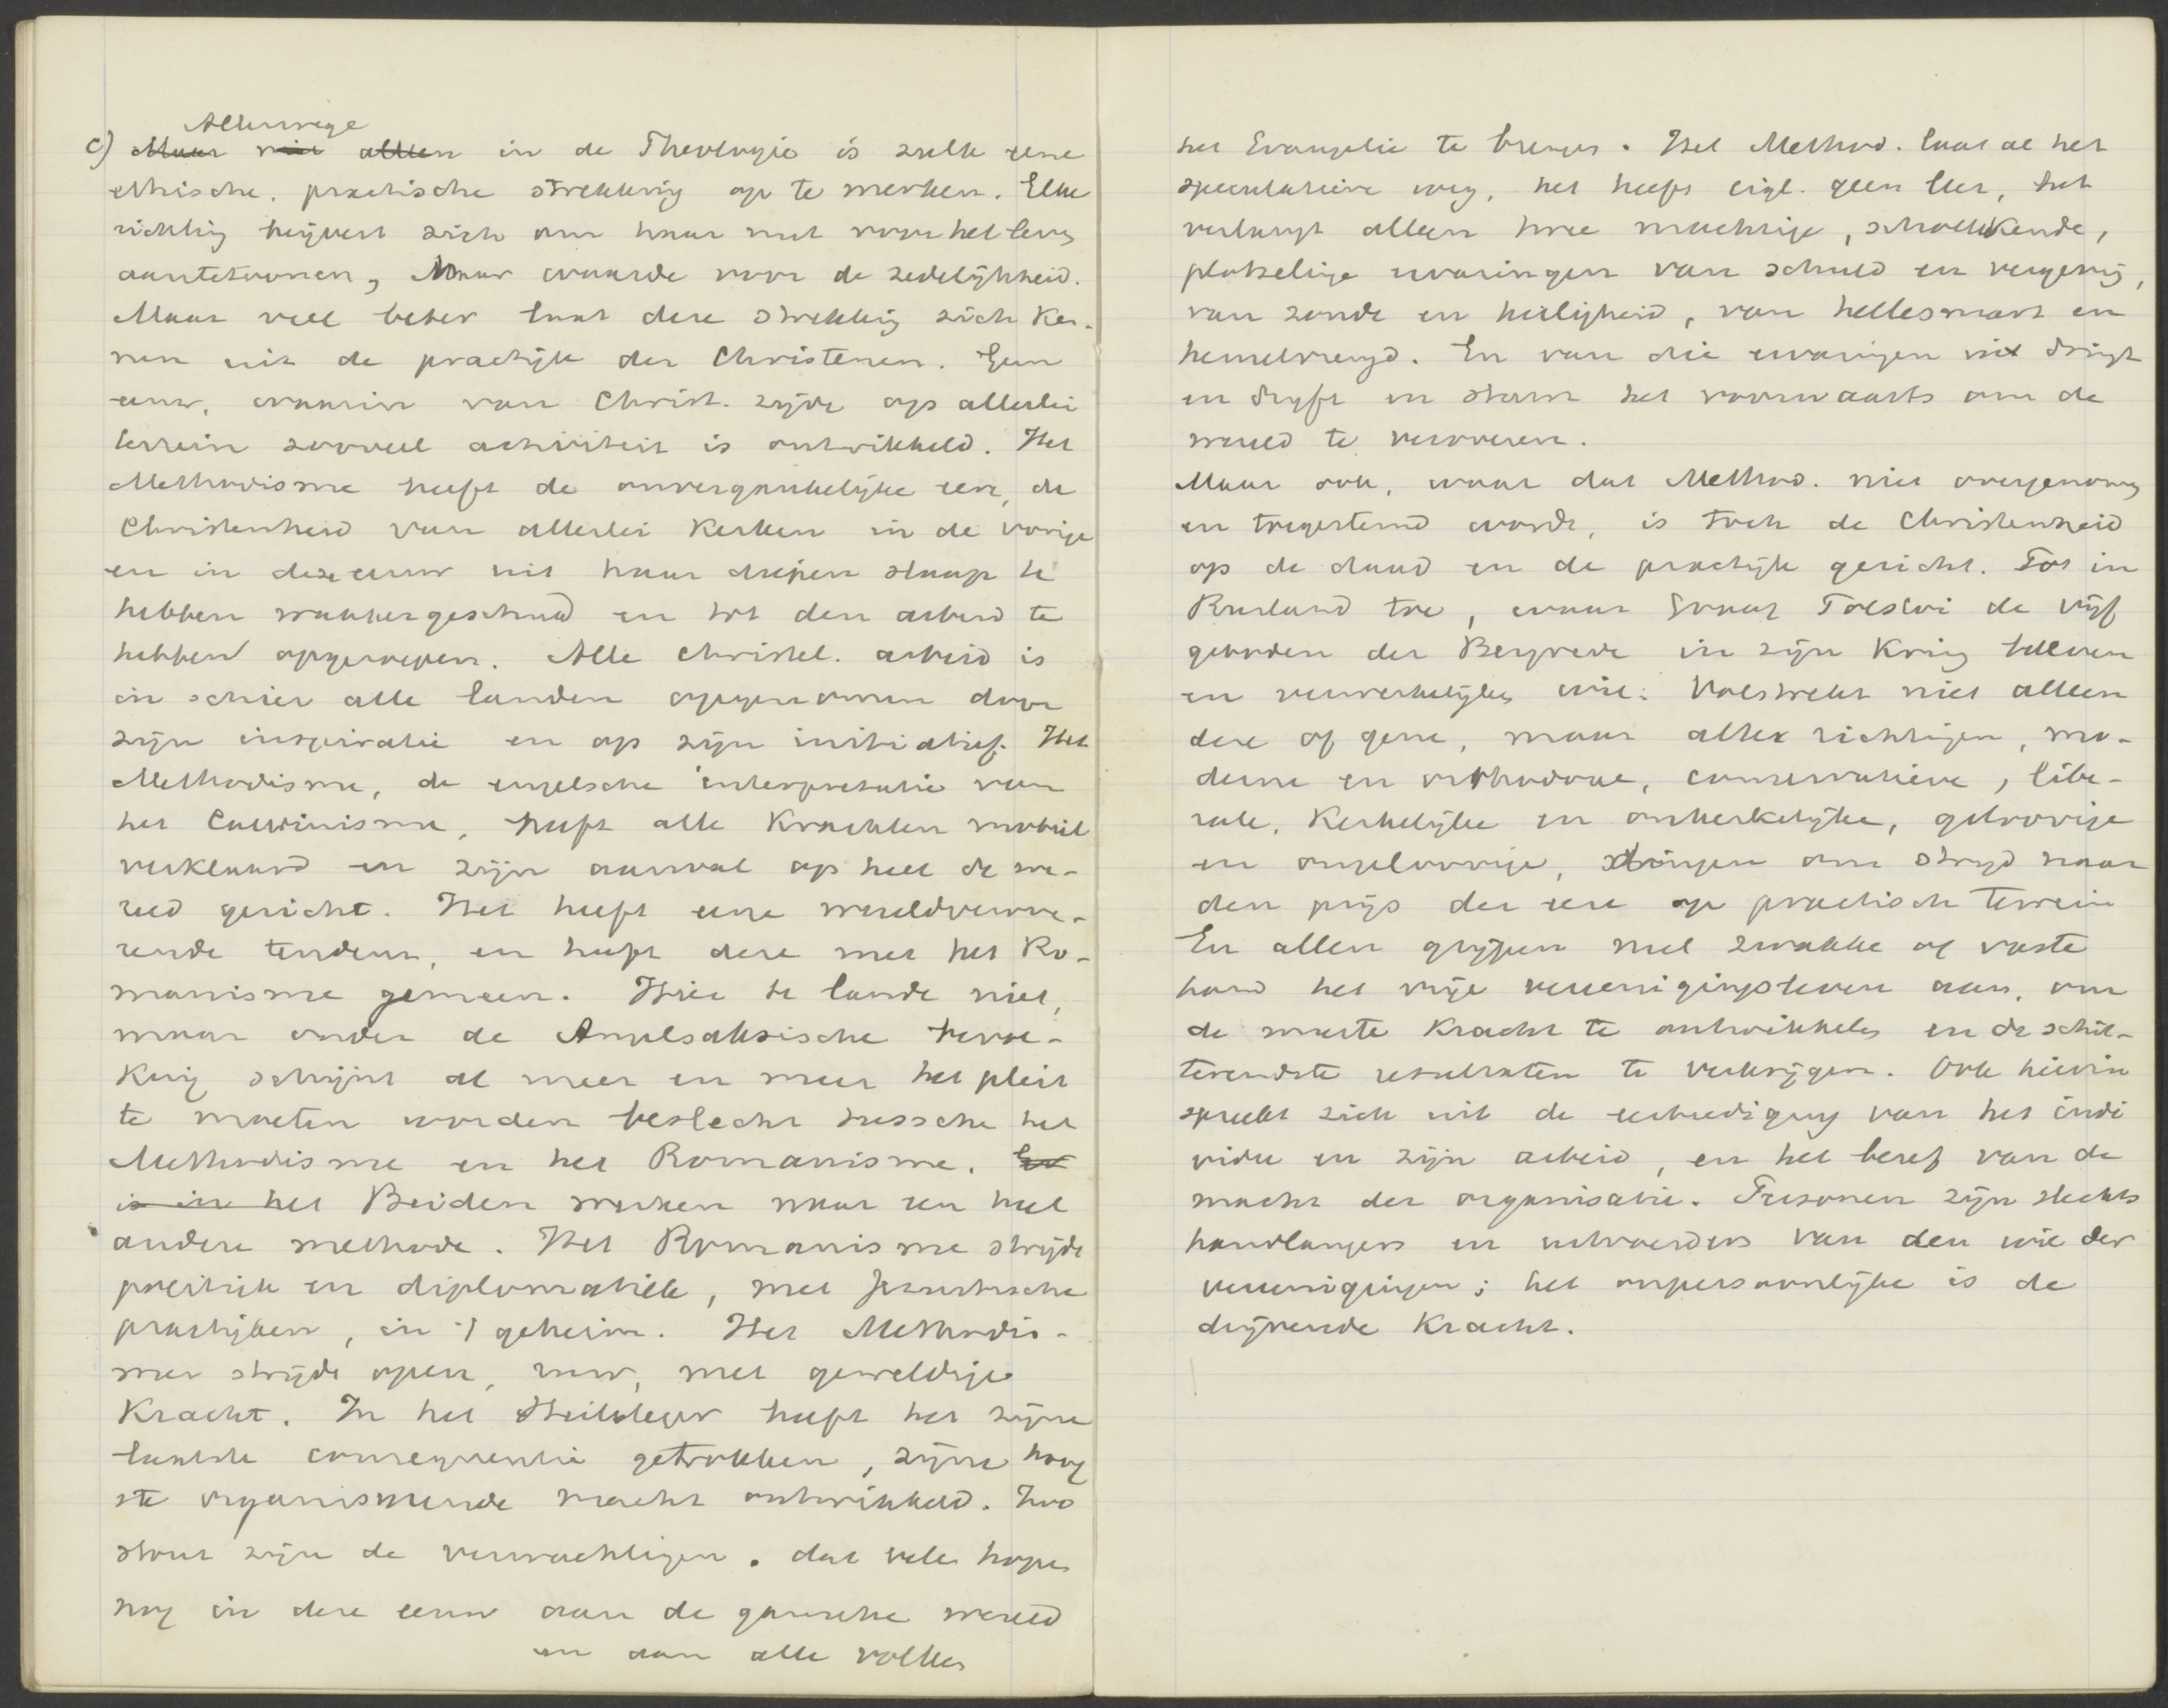 Allerwege
c) Maar niet alleen in de Theologie is zulk eene
ethische, practische strekking op te merken. Elke
richting beijvert zich om haar nut voor het leven
aantetoonen, haar waarde voor de zedelijkheid.
Maar veel beter laat deze strekking zich ken-
nen uit de practijk der Christenen. Geen
eeuw, waarin van Christ. zijde op allerlei
terrein zooveel activiteit is ontwikkeld. Het
Methodisme heeft de onvergankelijke eere, de
Christenheid van allerlei Kerken in de vorige
en in deze eeuw uit haar diepen slaap te
hebben wakkergeschud en tot den arbeid te
hebben opgeroepen. Alle christel. arbeid is
in schier alle landen opgenomen door
zijn inspiratie en op zijn initiatief. Het
Methodisme, de engelsche interpretatie van
het Calvinisme, heeft alle Krachten mobiel
verklaard en zijn aanval op heel de we-
reld gericht. Het heeft eene wereldverove-
rende tendenz, en heeft deze met het Ro-
manisme gemeen. Hier te lande niet,
maar onder de Angelsaksische bevol-
king schijnt al meer en meer het pleit
te moeten worden beslecht tussche het
Methodisme en het Romanisme. En
is in het Beiden werken naar een heel
andere methode. Het Romanisme strijdt
politiek en diplomatiek, met Jezuitische
practijken, in 't geheim. Het Methodis-
me strijdt open, ruw, met geweldige
Kracht. In het Heilsleger heeft het zijne
laatste consequentie getrokken, zijne hoog
ste organiseerende macht ontwikkeld. Zoo
stout zijn de verwachtingen, dat velen hopen
nog in deze eeuw aan de gansche wereld
en aan alle volken
het Evangelie te brengen. Het Method. laat al het
speculatieve weg, het heeft eigl. geen leer, het
verlangt alleen twee machtige, schokkende,
plotselinge ervaringen van schuld en vergeving,
van zonde en heiligheid, van hellesmart en
hemelvreugd. En van die ervaringen uit dringt
en drijft en stuwt het voorwaarts om de
wereld te veroveren.
Maar ook, waar dat Method. niet overgenomen
en toegestemd wordt, is toch de Christenheid
op de daad en de practijk gericht. Tot in
Rusland toe, waar Graaf Tolstoi de vijf
geboden der Bergrede in zijn Kring beleven
en verwerkelijken wil. Volstrekt niet alleen
deze of gene, maar alle richtingen, mo-
derne en orthodoxe, conservatieve, libe-
rale, Kerkelijke en onkerkelijke, geloovige
en ongeloovige, dingen om strijd naar
den prijs der eere op practisch terrein
En allen grijpen met zwakke of vaste
hand het vrije vereenigingsleven aan, om
de meeste Kracht te ontwikkelen en de schit-
terendste resultaten te verkrijgen. Ook hierin
spreekt zich uit de eerbiediging van het indi
vidu en zijn arbeid, en het besef van de
macht der organisatie. Personen zijn slechts
handlangers en uitvoerders van den wil der
vereenigingen; het onpersoonlijke is de
drijvende Kracht.